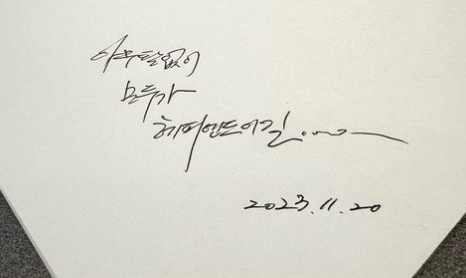 아무탈없이
모두가
해피엔드이길....
2023.11.20